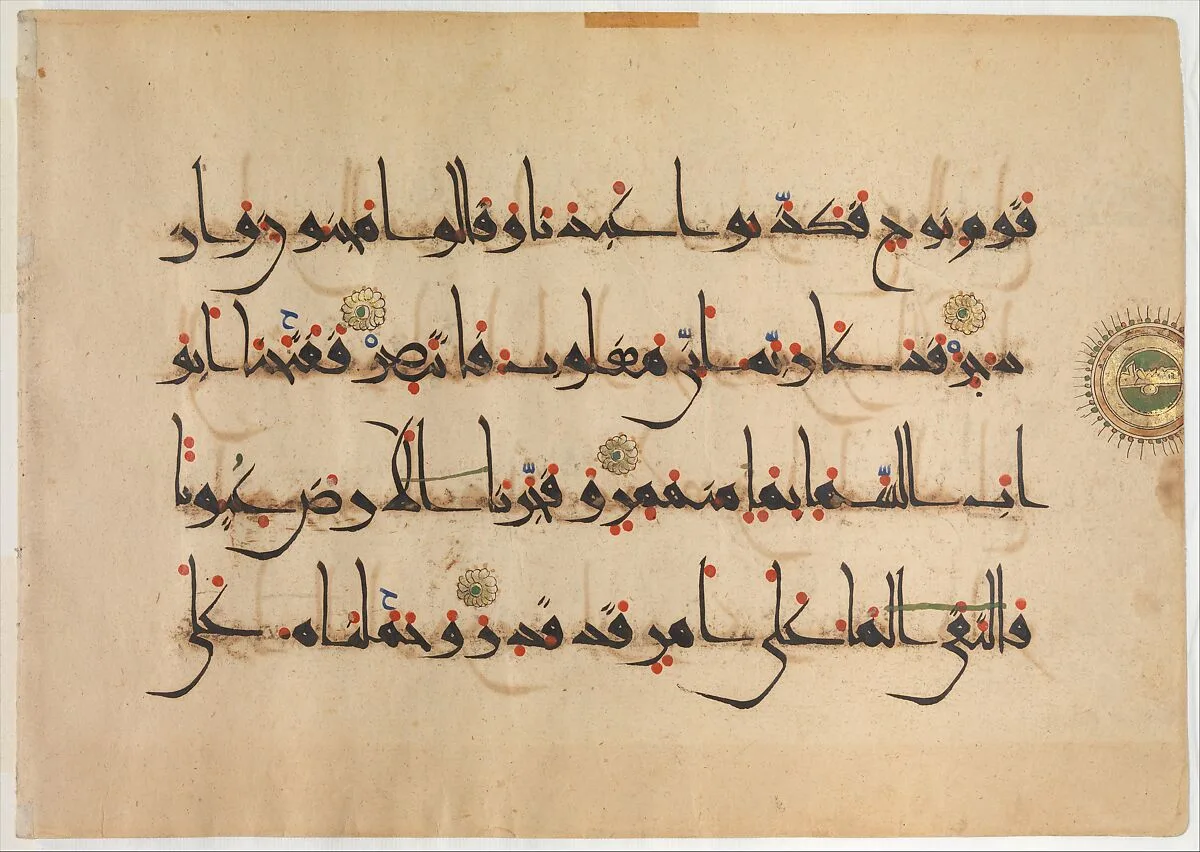 قوم نوح فكذّبوا عبدنا وقالوا مجنون واز
دجرْ فدعا ربّه انّي مغلوب فانتصرْ ففتحنا ابو
اب السّما بما منهمر وفجّرنا الارض عيُونا
فالتقى الما على امر قد قدر وحملناه على